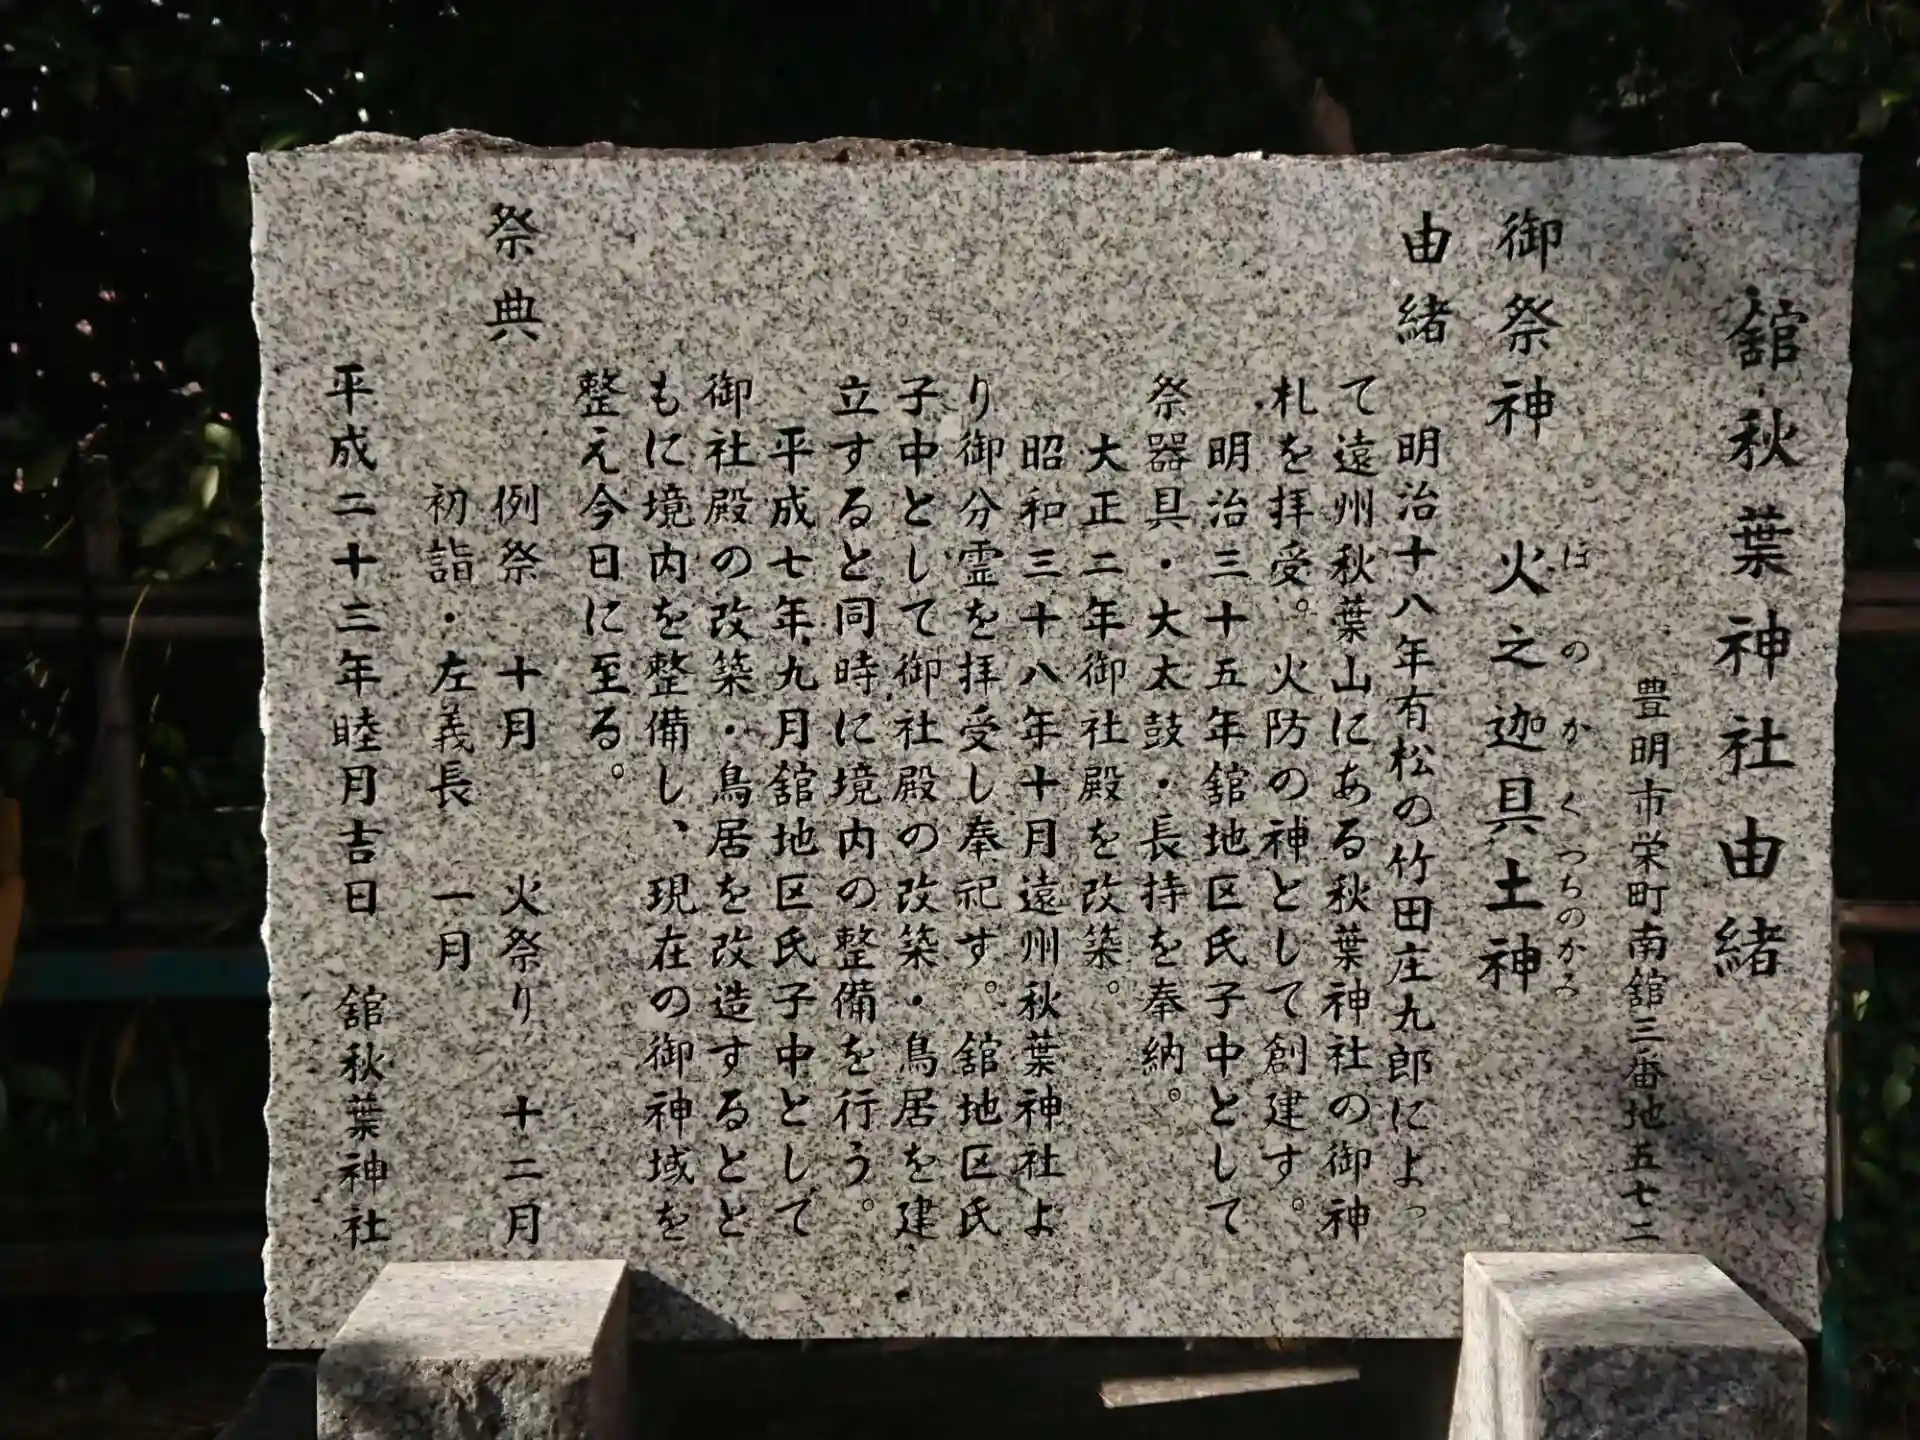 舘秋葉神社由緒
豊明市栄町南舘三番地五七二
御祭神　火之迦具土神
ほのかぐつちのかみ
由緒　明治十八年有松の竹田庄九郎によっ
て遠州秋葉山にある秋葉神社の御神
札を拝受。火防の神として創建す。
明治三十五年舘地区氏子中として
祭器具・大太鼓・長持を奉納。
大正二年御社殿を改築。
昭和三十八年十月遠州秋葉神社よ
り御分霊を拝受し奉祀す。舘地区氏
子中として御社殿の改築・鳥居を建
立すると同時に境内の整備を行う。
平成七年九月舘地区氏子中として
御社殿の改築・鳥居を改造するとと
もに境内を整備し、現在の御神域を
整え今日に至る。
祭典　例祭　十月　火祭り　十二月
初詣・左義長　一月
平成二十三年睦月吉日　舘秋葉神社